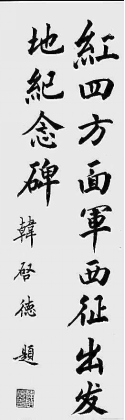 紅四方面軍西征出发
地紀念碑
韓啓德 題